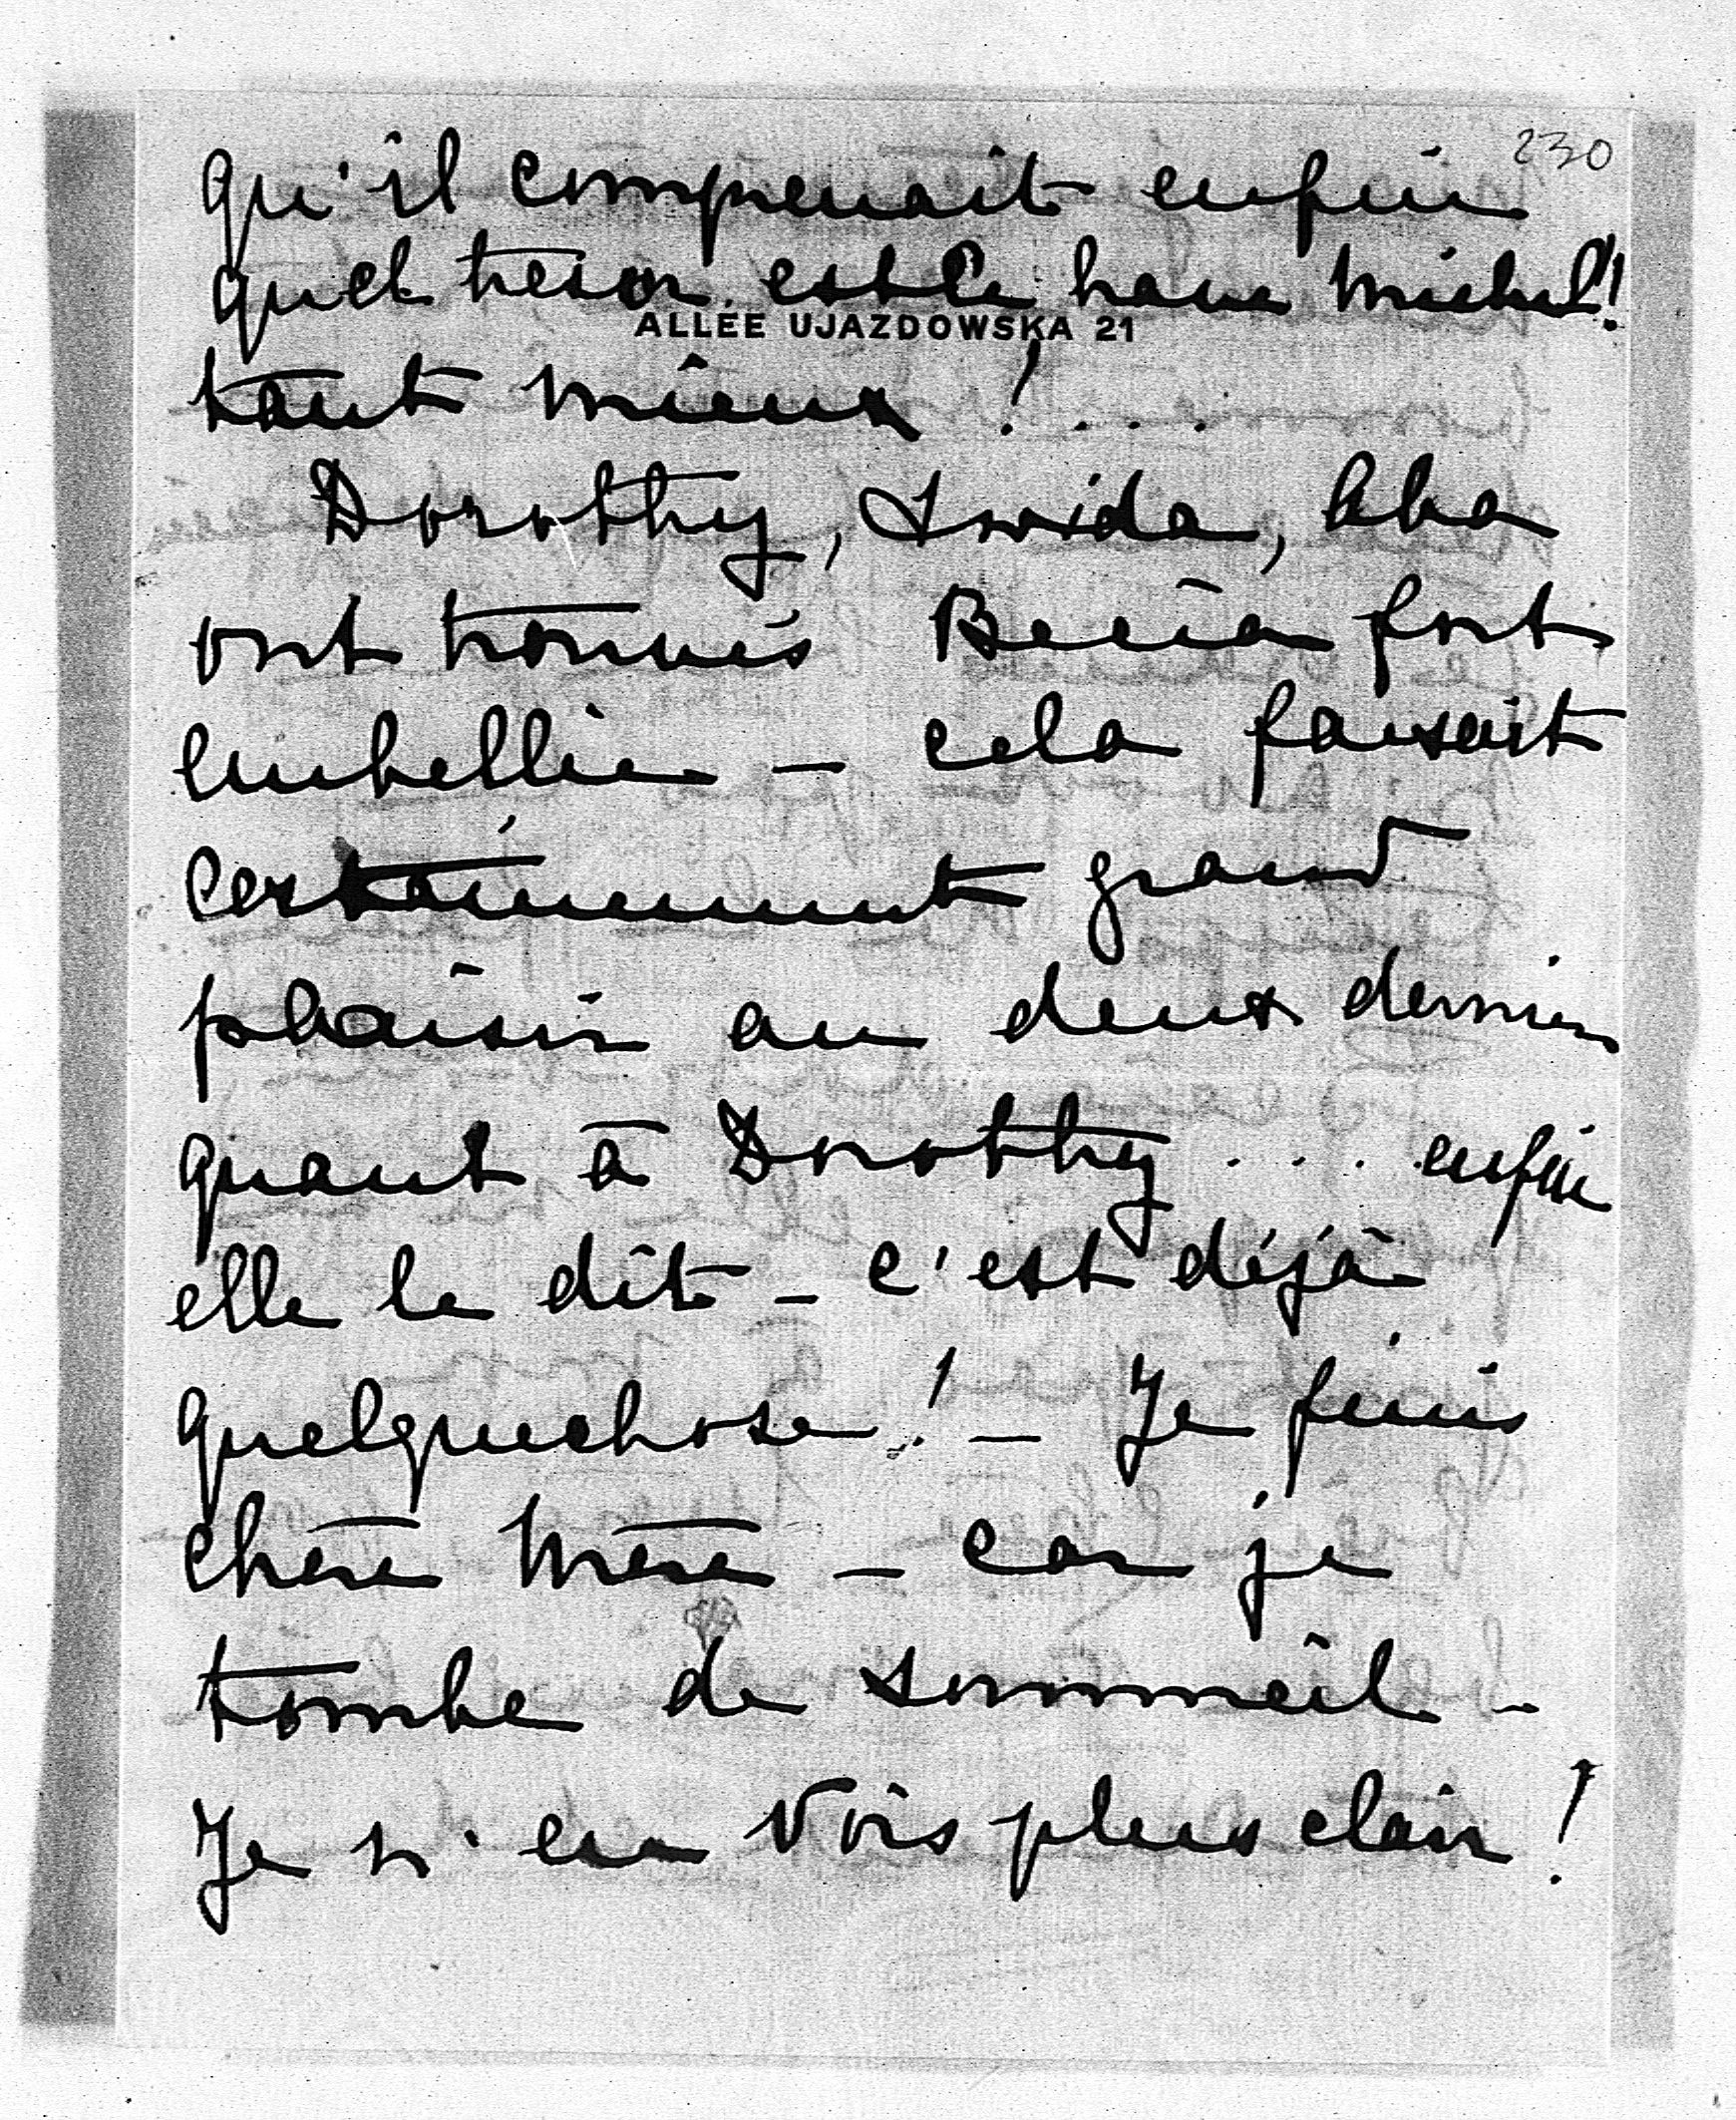 230
qu'il comprenait enfin
quel tresor est le brave Michel!
ALLEE UJAZDOWSKA 21
tant mieux !...
Dorothy, Swida, Aba
ont trouvés fort
embellie – cela faisait
certainement grand
plaisir au deux derniers
quant à Dorothy ... enfin
elle le dit – c'est déjà
quelquechose! – Je finis
chère Mère – car je
tombe de sommeil –
Je n'en vois plus clair!